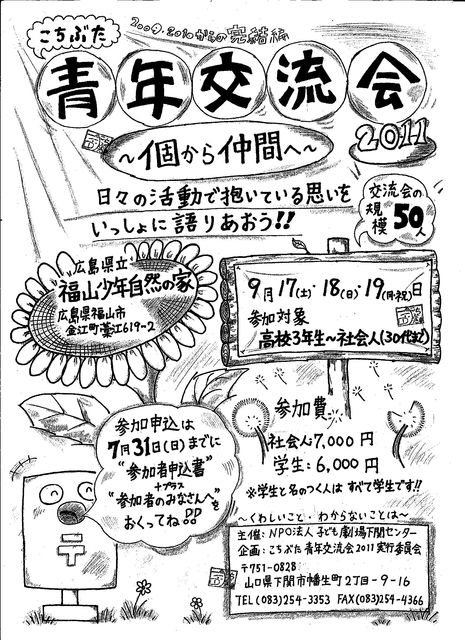 2009.2010からの完結編
こちぶた
青年交流会
2011
～個から仲間へ～
日々の活動で抱いている思いを
いっしょに語りあおう!!
交流会の
規模50人
広島県立
福山少年自然の家
広島県福山市
金江町藁江619-2
9月17(土)・18(日)・19(月・祝)日
参加対象
高校3年生～社会人(30代まで)
参加費
社会人:7,000円
学生:6,000円
※学生と名のつく人は すべて学生です!!
参加申込は
7月31日(日)までに
"参加者申込書"
+プラス
"参加者のみなさんへ"を
おくってね!!
～くわしいこと・わからないことは～
主催:NPO法人 子ども劇場下関センター
企画:こちぶた青年交流会2011実行委員会
〒751-0828
山口県下関市幡生町2丁目-9-16
TEL(083)254-3353 FAX(083)254-4366